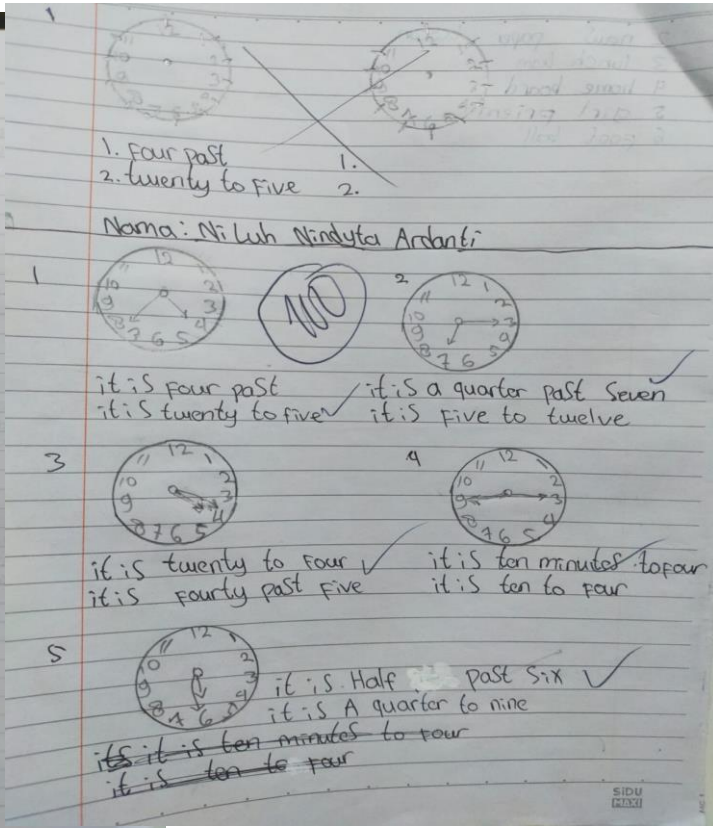 1
1. Four past 1.
2. twenty to Five 2.
Nama: Ni Luh Nindyta Ardanti
1
100
2
it is four past
it is twenty to five
it is a quarter past seven
it is five to twelve
3
it is twenty to four
it is fourty past five
4
it is ten minutes to four
it is ten to four
5
it is Half past six
it is A quarter to nine
its it is ten minutes to four
it is ten to four
SiDU
MAXI